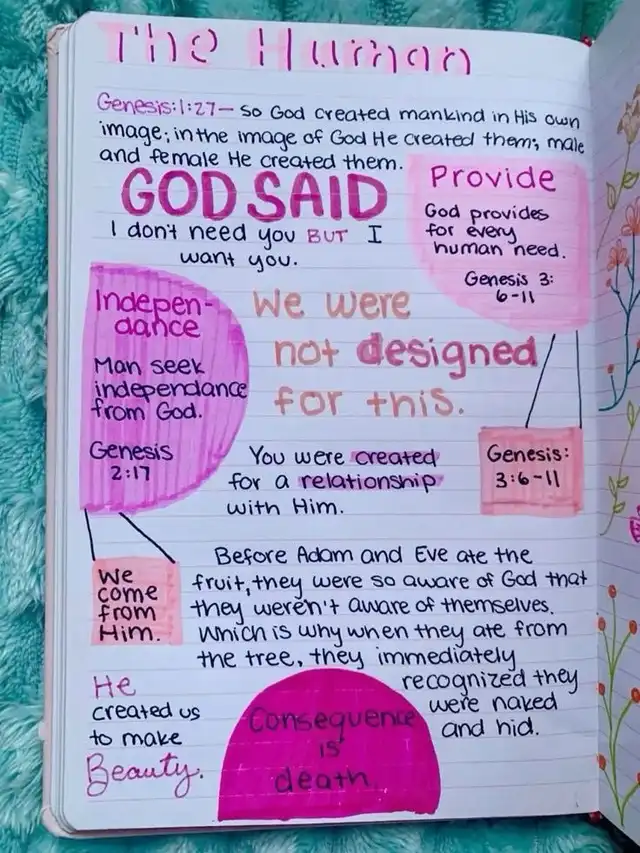 The Human
Genesis:1:27— So God created mankind in His own
image; in the image of God He created them; male
and female He created them.
GOD SAID
I don't need you BUT I
want you.
Provide
God provides
for every
human need.
Genesis 3:
6-11
Indepen-
dance
Man seek
independance
from God.
Genesis
2:17
We were
not designed
for this.
You were created
for a relationship
with Him.
Genesis:
3:6-11
We
come
from
Him.
Before Adam and Eve ate the
fruit, they were so aware of God that
they weren't aware of themselves.
Which is why when they ate from
the tree, they immediately
recognized they
were naked
and hid.
He
created us
to make
Beauty.
Consequence
is
death